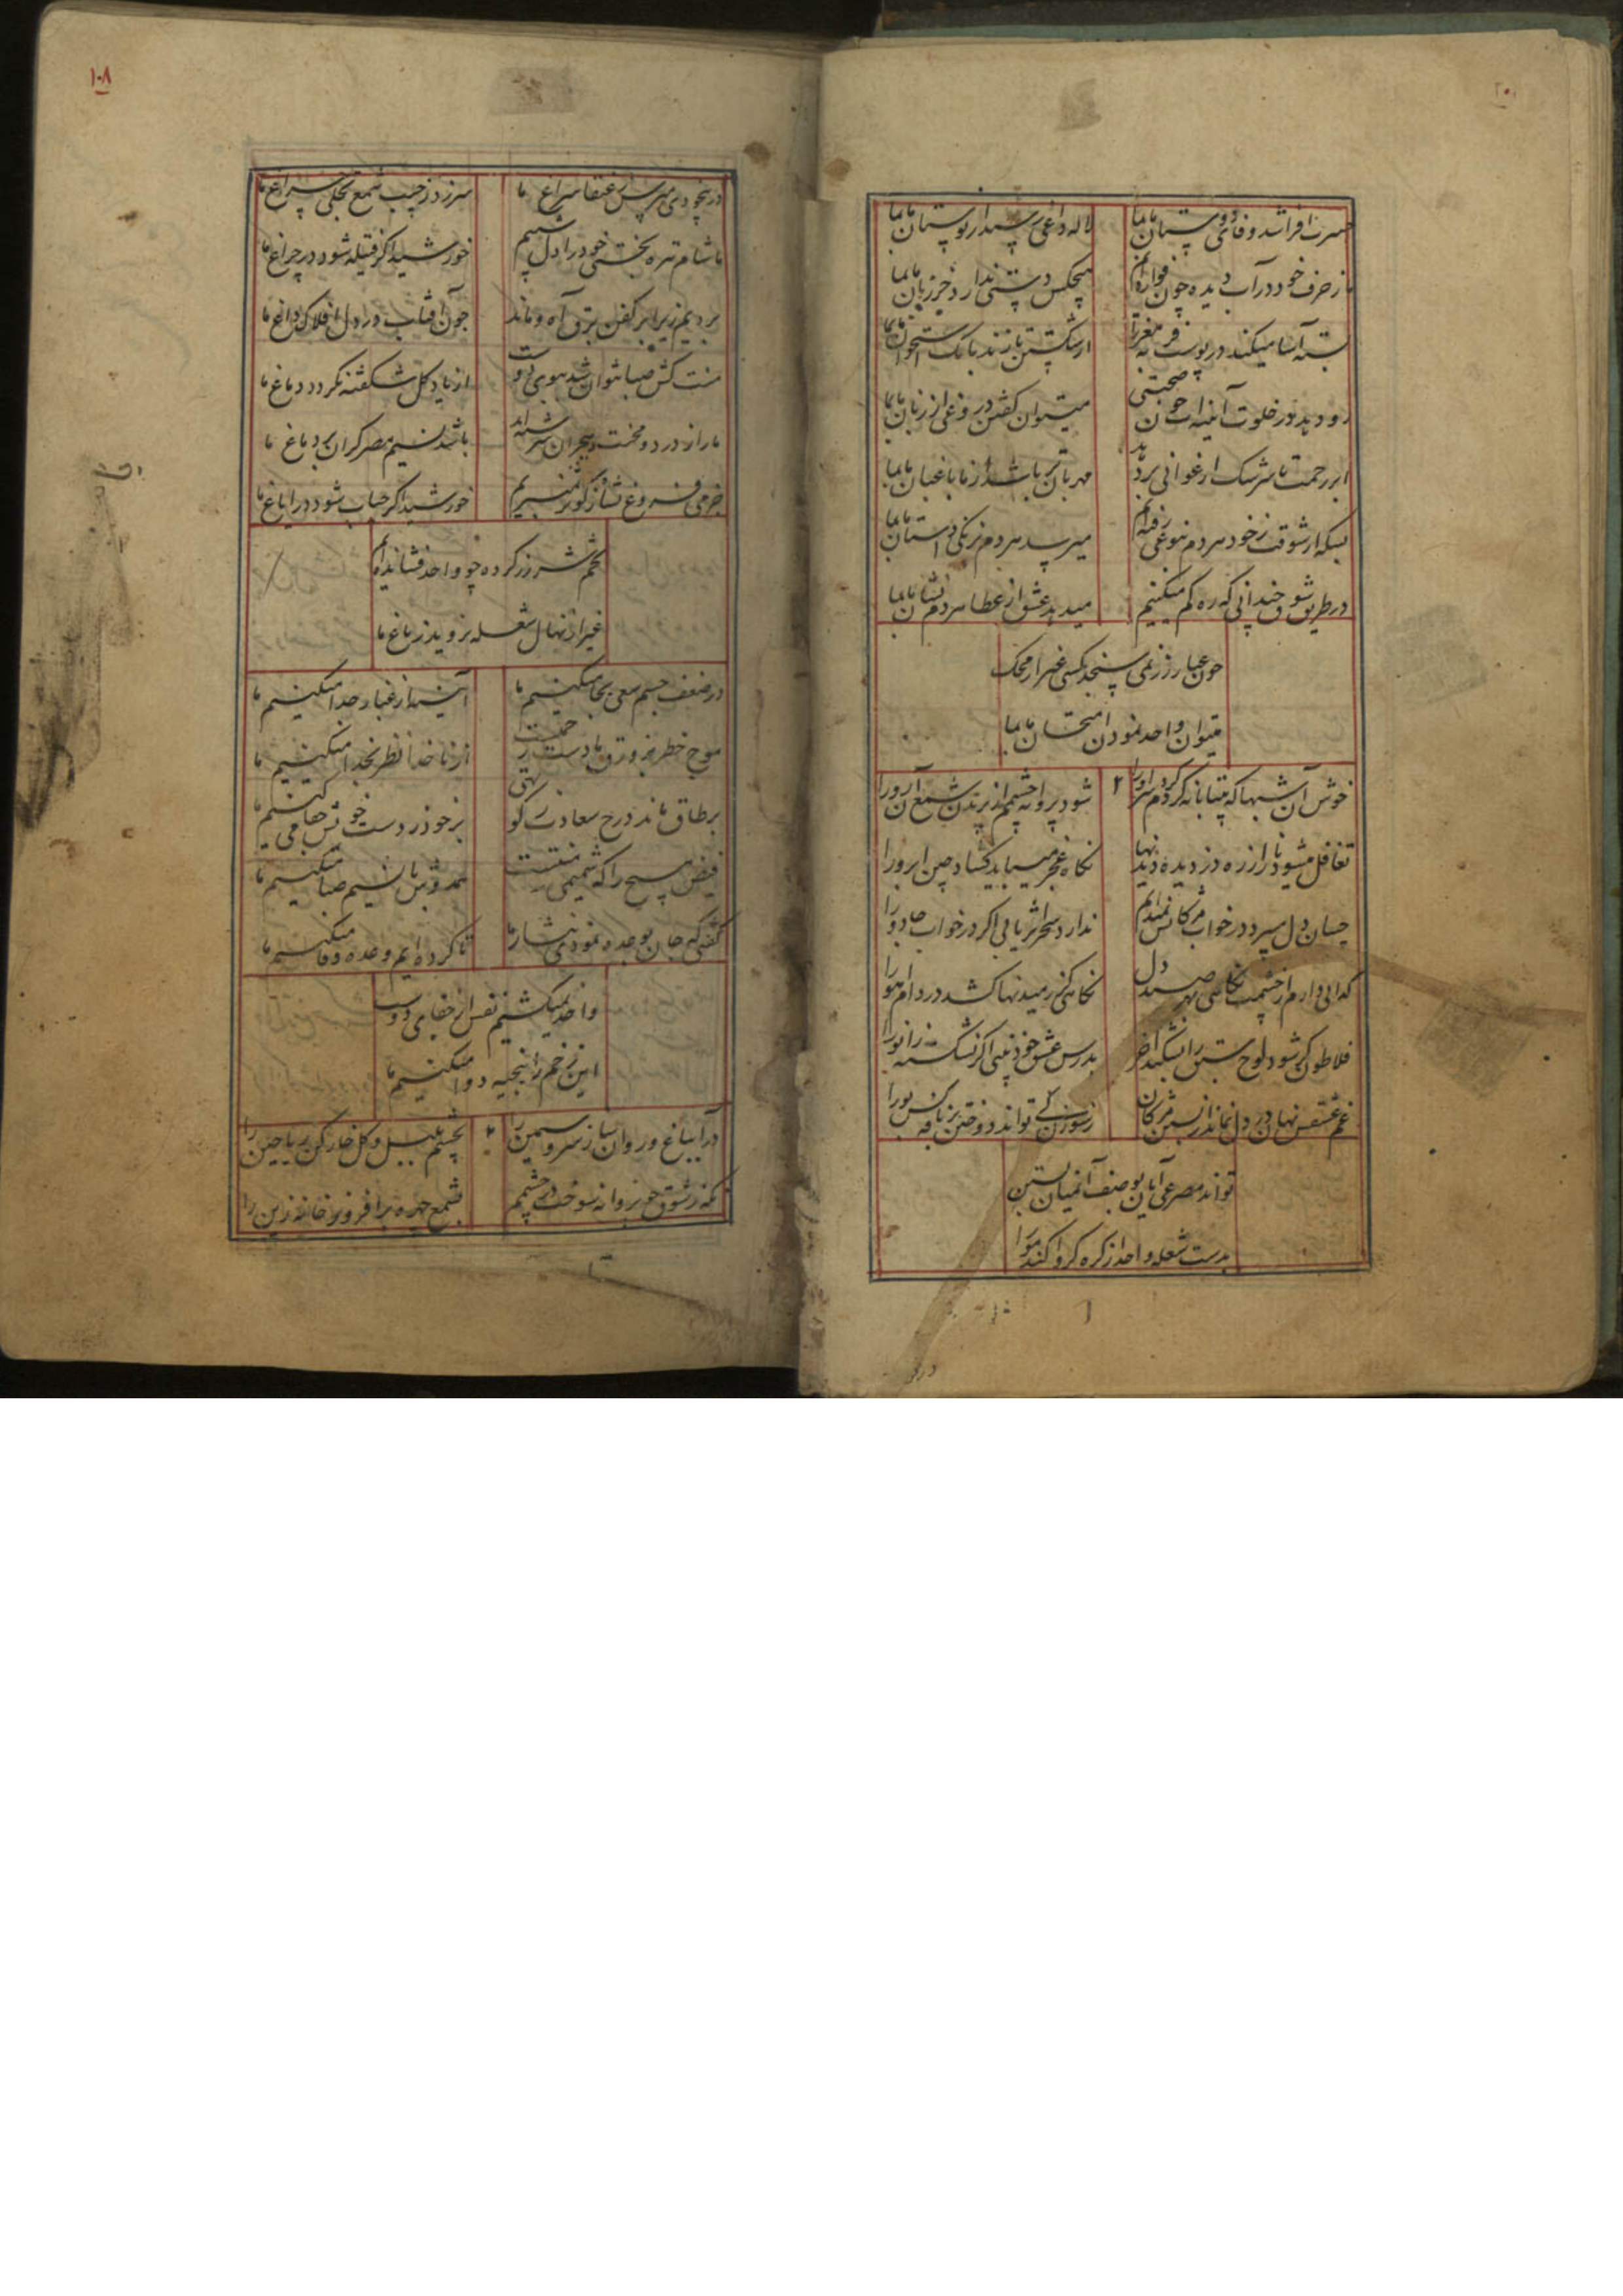 حسرت افزا شد وفای دوستان با ما بما
لاله داغی میرسد از بوستان با ما بما
ما ز حرف خود در آب دیده چون فواره‌ایم
هیچکس دستی ندارد جز زبان با ما بما
پسته آسا میکند در پوست فربه مغز را
از شکستن تا زند بانک استخوان با ما بما
رو دهد در خلوت آئینه آن صحبتی
میتوان گفتن دروغی از زبان ما بما
ابر رحمت تا سرشک ارغوانی برد
مهربان تر باشد از ما باغبان با ما بما
بسکه از شوقت ز خود هر دم بنوعی رفته‌ایم
میرسد هر دم برنگی داستان با ما بما
در طریق شوق چندانی که ره کم میکنیم
میدهد عشق از عطا هر دم نشان با ما بما
چون عیار زر نمی سنجد کسی غیر از محک
میتوان واحد نمودن امتحان با ما بما
خوش آن شبها که بیتابانه کردم سر او را
شود پروانه چشم از پرزدن شمع آن رو را
تغافل میشود باز از ره دزدیده دیدنها
نگاه عجز میباید گشاد چین ابرو را
چسان دل میبرد در خواب مژگانش نمیدانم
ندارد سحر اثر یابی اگر در خواب جادو را
گدایی دارم از چشمت نگاهی بهر صید دل
نگاهی کز رمیدنها کشد در دام آهو را
فلاطون گر شود لوح سبق را بشکند آخر
بدرس عشق خود بینی اگر نشکسته زانو را
غم عشقش نهان در دل نماند از بستن مژگان
ز سوزن کی تواند دوختن بر نافه کس بو را
تواند مصرعی آیان بوصف آن میان بستن
بدست شعله واحد از گره گر وا کند مو را
در بیخودی مپرس ز عنقا سراغ ما
سر زد ز جیب شمع تجلی چراغ ما
ما شام تیره بختی خود را دل شبیم
خورشید اگر فتیله شود در چراغ ما
بردیم زیر ابر کفن برق آه و ماند
چون آفتاب در دل افلاک داغ ما
منت کش صبا نتوان شد ببوی دوست
از باد گل شکفته نگردد دماغ ما
ما را ز درد و محنت هجران سرشته‌اند
باشد نسیم مصر گران بر دماغ ما
جز می فروغ نشأ ز کوثر نمیبریم
خورشید اگر حباب شود در ایاغ ما
تخم شرر ز گرده چو واحد فشانده‌ایم
غیر از نهال شعله نروید ز باغ ما
در ضعف جسم سعی بجا میکنیم ما
آئینه از غبار جدا میکنیم ما
موج خطر بزورق ما دست رحمتست
از ناخدا نظر بخدا میکنیم ما
بر طاق ماند درج سعادت ز کوتهی
بر خود ز دست خویش جفا میکنیم ما
فیض مسیح را که شمیمی ز منتست
همدوش با نسیم صبا میکنیم ما
گفتی که جان بوعده نمودی نثار ما
تا کرده‌ایم وعده وفا میکنیم ما
واحد نمیکشیم نفس از جفای دوست
این زخم را ببخیه دوا میکنیم ما
درآ بباغ و روان ساز سرو سیمین را
بچشم بلبل و گل خار کن ریاحین را
که ز شوق چو پروانه سوخت در چشمم
بشمع چهره برافروز خانه زین را
۱۰۸